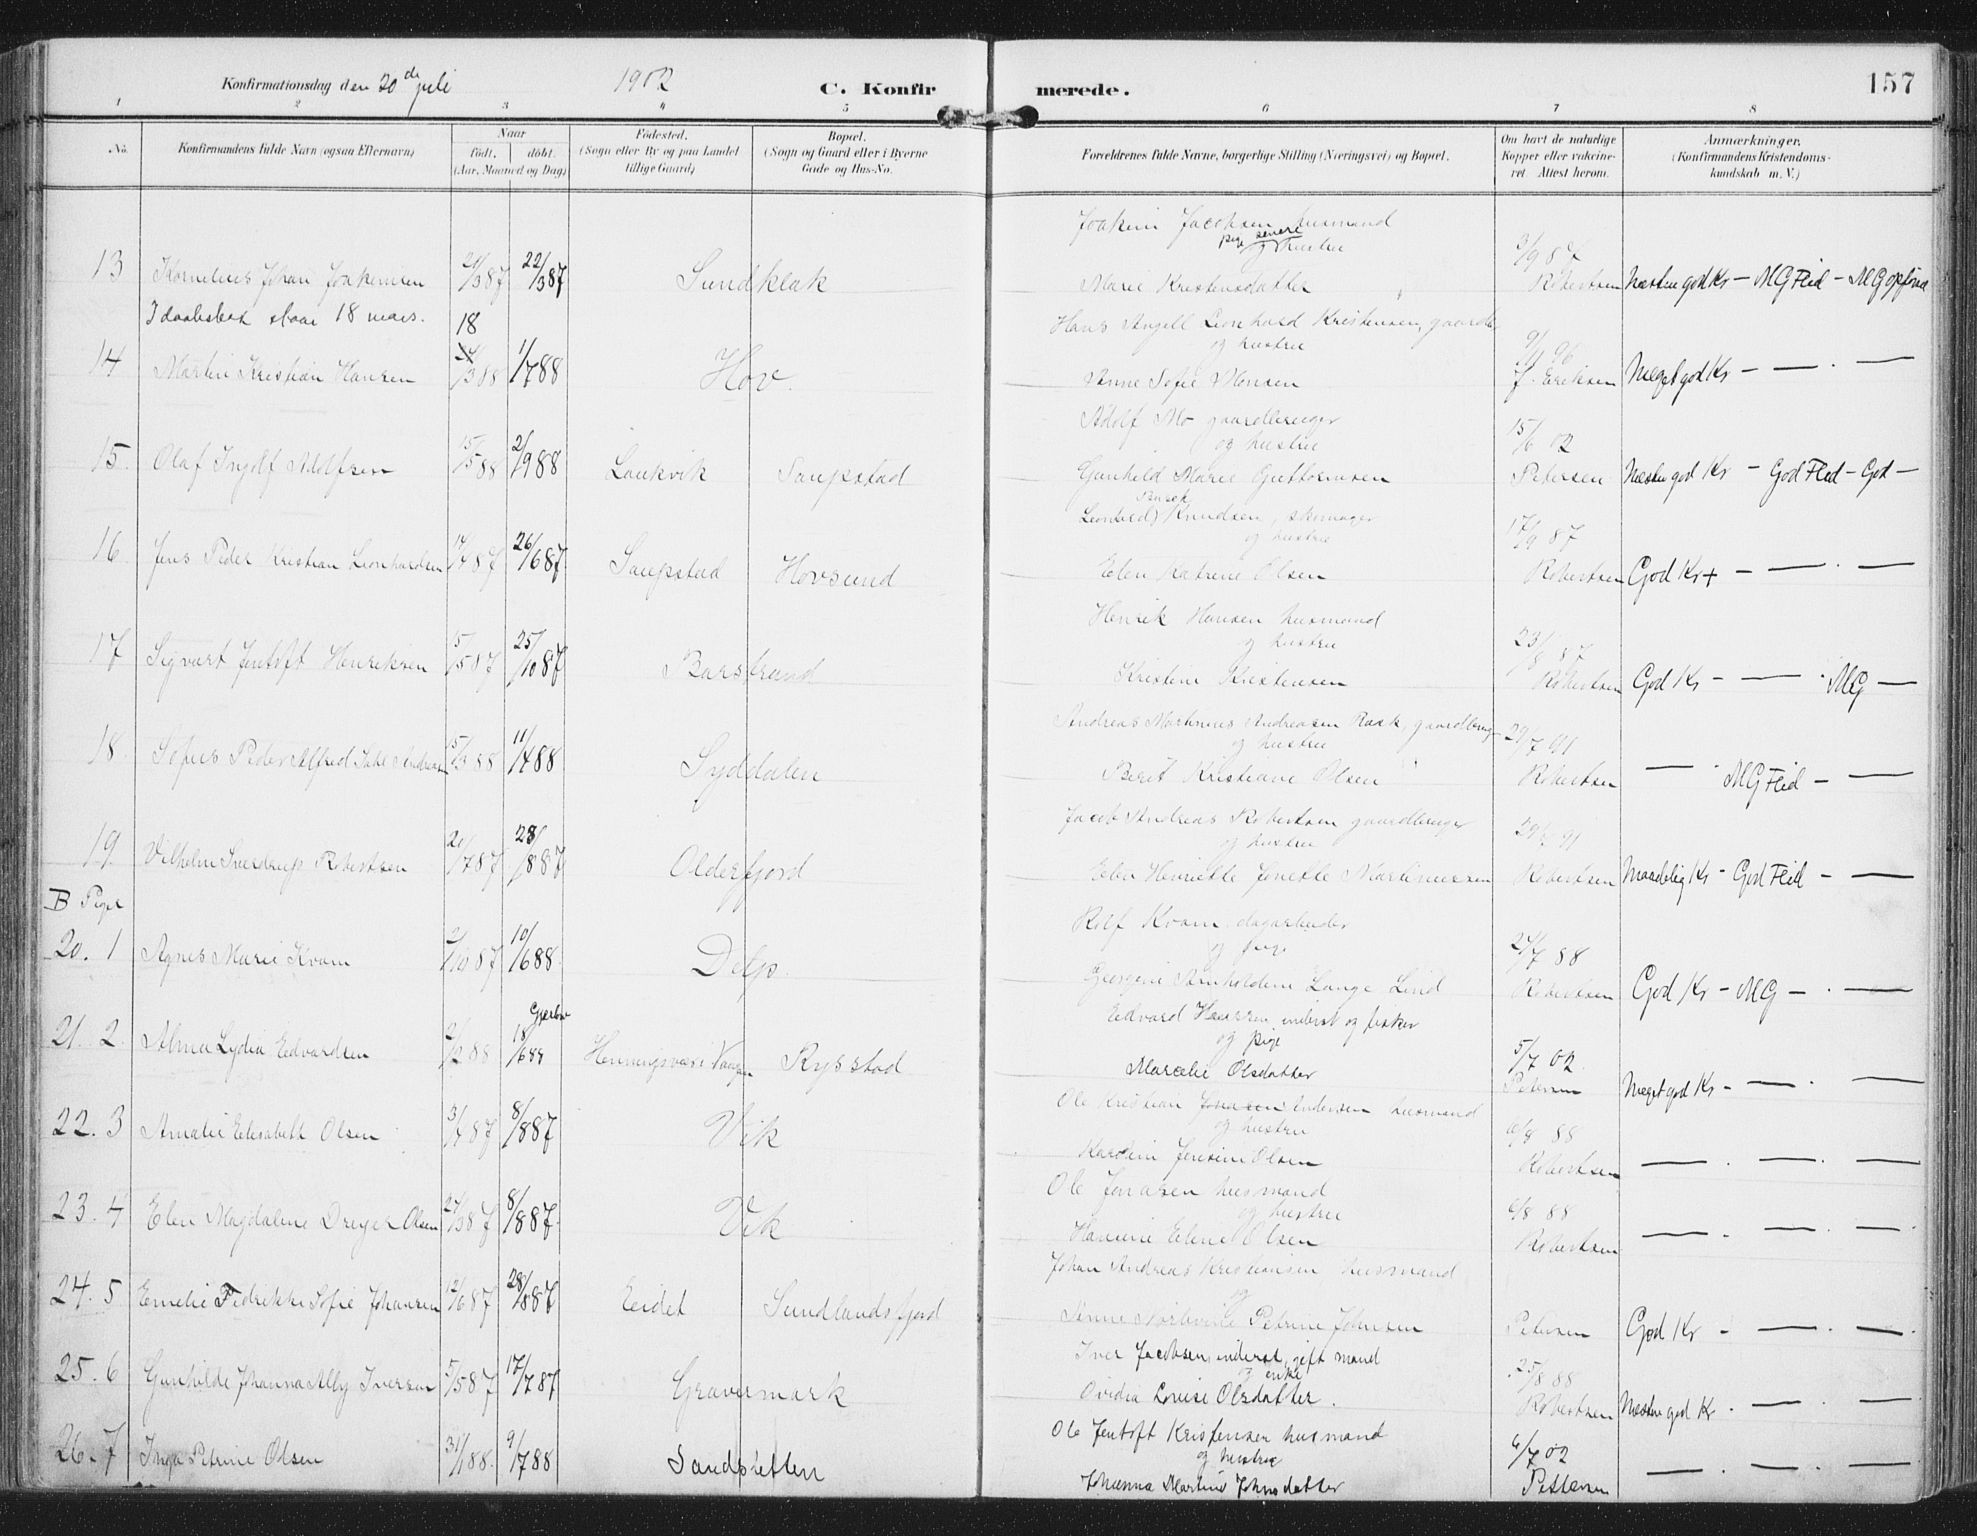 Konfirmationsdag den 20de juli 1902 C. Konfirmerede. 157
1 2 3 4 5 6 7 8
No. Konfirmandens fulde Navn (ogsaa Efternavn) Naar født, døbt. (Aar, Maaned og Dag) Fødested. (Sogn eller By og paa Landet tillige Gaard) Bopæl. (Sogn og Gaard eller i Byerne Gade og Hus-No. Forældrenes fulde Navne, borgerlige Stilling (Næringsvei) og Bopæl. Om havt de naturlige Kopper eller vakcineret. Attest herom. Anmærkninger. (Konfirmandens Kristendomskundskab m. V.)
Joakim Jacobsen husmand
pige senere
og hustru
13 Kornelius Johan Joakimsen 21/3 87 22/3 87 Sundklak Marie Kristensdatter 3/9 87 Robertsen Næsten god Kr - MG Flid - MG opførsel
I daabsbok staar 18 mars. 18
Hans Angell Leonhard Kristensen, gaardb.
og hustru
14 Martin Kristian Hansen 24/3 88 1/7 88 Hov. Anne Sofie Monsen 9/11 96 J. Eriksen Meget god Kr - — . —
Adolf Mo gaardbruger
og hustru
15. Olaf Ingolf Adolfsen 15/5 88 2/9 88 Laukvik Saupstad Gunhild Marie Guttormsen 15/6 02 Petersen Næsten god Kr - God Flid - God -
Leonhard Knudsen, skomager
og hustru
16. Jens Peder Kristian Leonhardsen 14/4 87 26/6 87 Saupstad Hovsund Elen Katrine Olsen 17/9 87 Robertsen God Kr + - — . —
Henrik Hansen husmand
og hustru
17 Sigvart Jentoft Henriksen 15/5 87 25/10 87 Barstrand Kristine Kristensen 23/8 87 Robertsen God Kr - — . MG —
Andreas Martinus Andreasen Rask, gaardbrug.
og hustru
18. Sofus Peder Alfred Andreasen 15/3 88 11/4 88 Syddalen Berit Kristiane Olsen 29/7 91 Robertsen — . MG Flid - —
Jacob Andreas Robertsen gaardbruger
og hustru
19. Vilhelm Sverdrup Robertsen 20/7 87 28/8 87 Olderfjord Elen Henriette Jonette Martinussen 29/7 91 Robertsen Maadelig Kr - God Flid - —
B Piger
Rolf Kvam dagarbeider
og pige
20. 1 Agnes Marie Kvam 2/10 87 10/6 88 Delp. Georgine Arnholdine Lange Lind 24/7 88 Robertsen God Kr - MG - . —
Edvard Hansen inderst og fisker
og pige
21. 2 Alma Lydia Edvardsen 2/2 88 18/6 88 Henningsvær i Vaagan Rysstad Marcelie Olsdatter 5/7 02 Petersen Meget god Kr - — . —
Ole Kristian Jonasen Andersen husmand
og hustru
22. 3 Amalie Elisabeth Olsen 3/4 87 8/8 87 Vik Karolin Jensine Olsen 6/8 88 Robertsen — . — . —
Ole Jonasen husmand
og hustru
23. 4 Elen Magdalene Dreyer Olsen 24/3 87 8/8 87 Vik Hansine Elene Olsen 6/8 88 Robertsen — . — . —
Johan Andreas Kristiansen husmand
og
24. 5 Emelie Fedrikke Sofie Johansen 12/6 87 28/8 87 Eidet Sundlandsfjord Anne Petrine Johnsen Petersen God Kr - — . —
Iver Jacobsen, inderst, gift mand
og enke
25. 6 Gunhilde Johanna Ally Iversen 5/5 87 17/7 87 Gravermark Ovidia Louise Olsdatter. 25/8 88 Robertsen Næsten god Kr . — . —
Ole Jentoft Kristensen husmand
og hustru
26. 7 Inga Petrine Olsen 31/1 88. 9/7 88 Sandsletten Johanna Martine Johnsdatter 6/7 02 Pettersen — . — . —